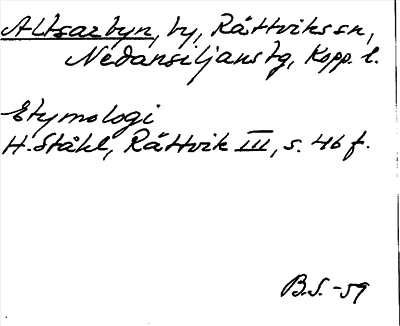 Altsarbyn, by, Rättvikssn,
Nedansiljanstg, Kopp. l.
Etymologi
H. Ståhl, Rättvik III, s. 46 f.
B.S. -59